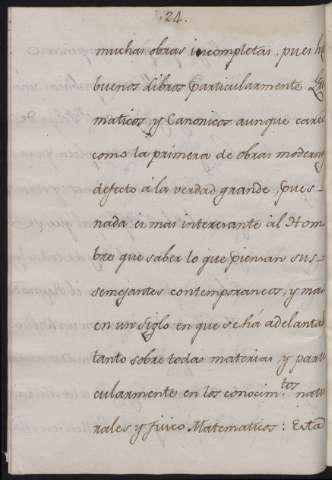 24.
muchas obras incompletas, pues h
buenos libros particularmente
maticos y Canonicos aunque care
como la primera de obras modern
defecto á la verdad grande, pues
nada es mas interesante al Hom-
bre que saber lo que piensan sus
semejantes contemporaneos, y mas
en un Siglo en que se há adelanta
tanto sobre todas materias, y parti
cularmente en los conocim.tos natu
rales y fisico Matematicos: Esta